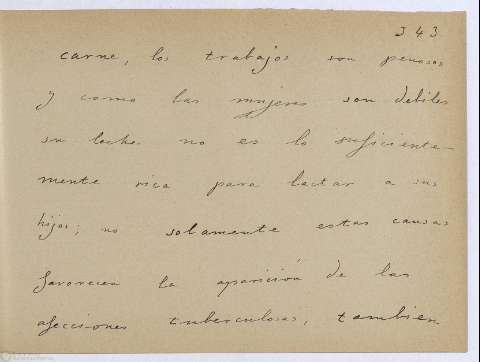 343
carne, los trabajos son penosos
y como las mujeres son debiles
su leche no es lo suficiente-
mente rica para lactar a sus
hijos; no solamente estas causas
favorecen la aparición de las
afecciones tuberculosas, tambien